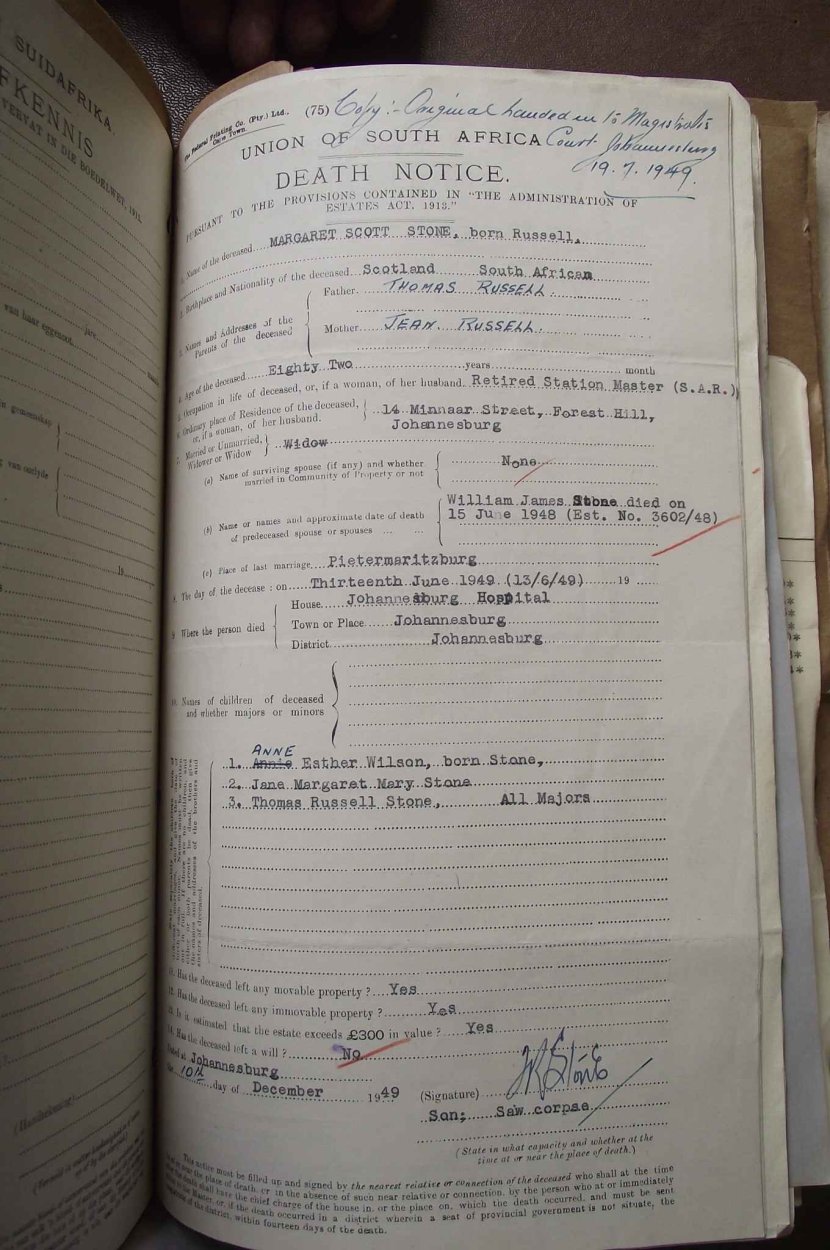 SUIDAFRIKA.
FKENNIS
VERVAT IN DIE BOEDELWET, 1913.
van haar eggenoot
jare
maande
in gemeenskap
19
(Handtekening)
The Federal Printing Co. (Pty.) Ltd.,
Cape Town.
(75) Copy:- Original handed in to Magistrate's
Court Johannesburg
19.7.1949.
UNION OF SOUTH AFRICA
DEATH NOTICE.
PURSUANT TO THE PROVISIONS CONTAINED IN "THE ADMINISTRATION OF
ESTATES ACT, 1913."
1. Name of the deceased MARGARET SCOTT STONE, born Russell,
2. Birthplace and Nationality of the deceased Scotland South African
3. Names and Addresses of the
Parents of the deceased
Father THOMAS RUSSELL.
Mother JEAN RUSSELL.
4. Age of the deceased Eighty Two years month
5. Occupation in life of deceased, or, if a woman, of her husband Retired Station Master (S.A.R.)
6. Ordinary place of Residence of the deceased,
or, if a woman, of her husband.
14 Minnaar Street, Forest Hill,
Johannesburg
7. Married or Unmarried,
Widower or Widow
Widow
(a) Name of surviving spouse (if any) and whether
married in Community of Property or not
None
(b) Name or names and approximate date of death
of predeceased spouse or spouses ... ...
William James Stone died on
15 June 1948 (Est. No. 3602/48)
(c) Place of last marriage Pietermaritzburg
8. The day of the decease : on Thirteenth June 1949 (13/6/49) 19
9. Where the person died
House Johannesburg Hospital
Town or Place Johannesburg
District Johannesburg
10. Names of children of deceased
and whether majors or minors
ANNE
1. Annie Esther Wilson, born Stone,
2. Jane Margaret Mary Stone
3. Thomas Russell Stone, All Majors
11. Has the deceased left any movable property ? Yes
12. Has the deceased left any immovable property ? Yes
13. Is it estimated that the estate exceeds £300 in value ? Yes
14. Has the deceased left a will ? No
Dated at Johannesburg
the 10th day of December 1949
(Signature) Stone
Son; Saw corpse
(State in what capacity and whether at the
time at or near the place of death.)
This notice must be filled up and signed by the nearest relative or connection of the deceased who shall at the time
at or near the place of death, or in the absence of such near relative or connection, by the person who at or immediately
after the death shall have the chief charge of the house in, or the place on, which the death occurred, and must be sent
to the Master, or, if the death occurred in a district wherein a seat of provincial government is not situate, the
of the district, within fourteen days of the death.